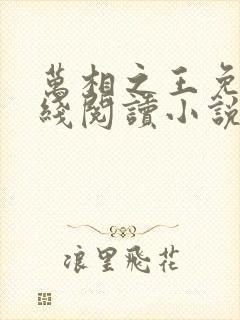 萬相之王免
綫閱讀小說
浪里飛花